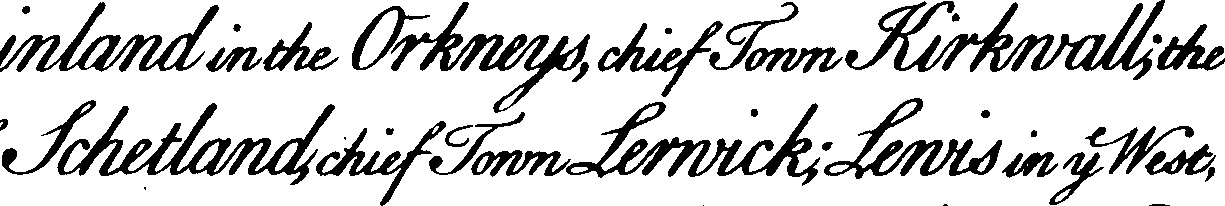 inland in the Orkneys, chief Town Kirkwall; the
Schetland, chief Town Lerwick; Lewis in yͤ West,